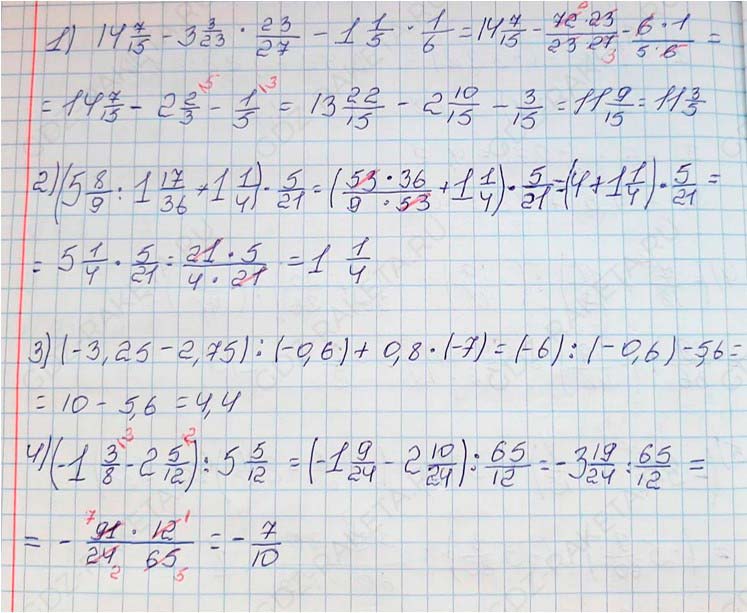 1) 14 7/15 - 3 3/23 · 23/27 - 1 1/5 · 1/6 = 14 7/15 - 72·23/23·27 - 6·1/5·6 =
= 14 7/15 - 2 2/3 - 1/5 = 13 22/15 - 2 10/15 - 3/15 = 11 9/15 = 11 3/5
2) (5 8/9 : 1 17/36 + 1 1/4) · 5/21 = (53·36/9·53 + 1 1/4) · 5/21 = (4 + 1 1/4) · 5/21 =
= 5 1/4 · 5/21 = 21·5/4·21 = 1 1/4
3) (-3,25 - 2,75) : (-0,6) + 0,8 · (-7) = (-6) : (-0,6) - 5,6 =
= 10 - 5,6 = 4,4
4) (-1 3/8 - 2 5/12) : 5 5/12 = (-1 9/24 - 2 10/24) : 65/12 = -3 19/24 : 65/12 =
= - 91·12/24 65 = - 7/10
GDZ-RAKETA.RU